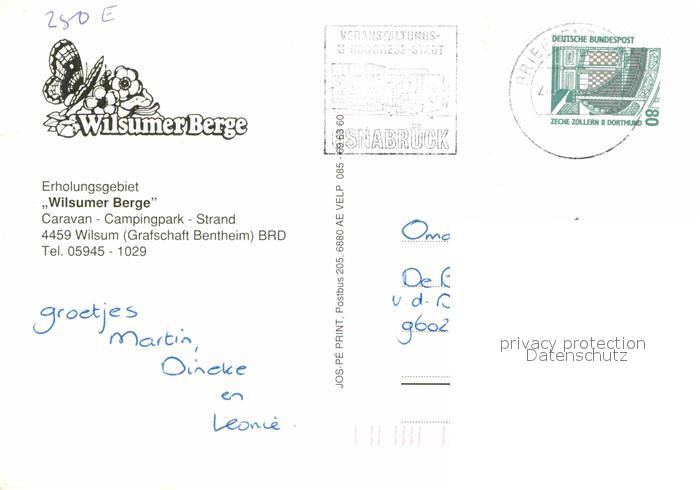 280 E
VERANSTALTUNGS-
U KONGRESS-STADT
OSNABRÜCK
DEUTSCHE BUNDESPOST
80
ZECHE ZOLLERN II DORTMUND
Wilsumer Berge
Erholungsgebiet
„Wilsumer Berge"
Caravan - Campingpark - Strand
4459 Wilsum (Grafschaft Bentheim) BRD
Tel. 05945 - 1029
groetjes
Martin,
Dineke
en
Leonie.
JOS-PÉ PRINT, Postbus 205, 6880 AE VELP 085 - 69 63 60
De
v d-
9602
privacy protection
Datenschutz